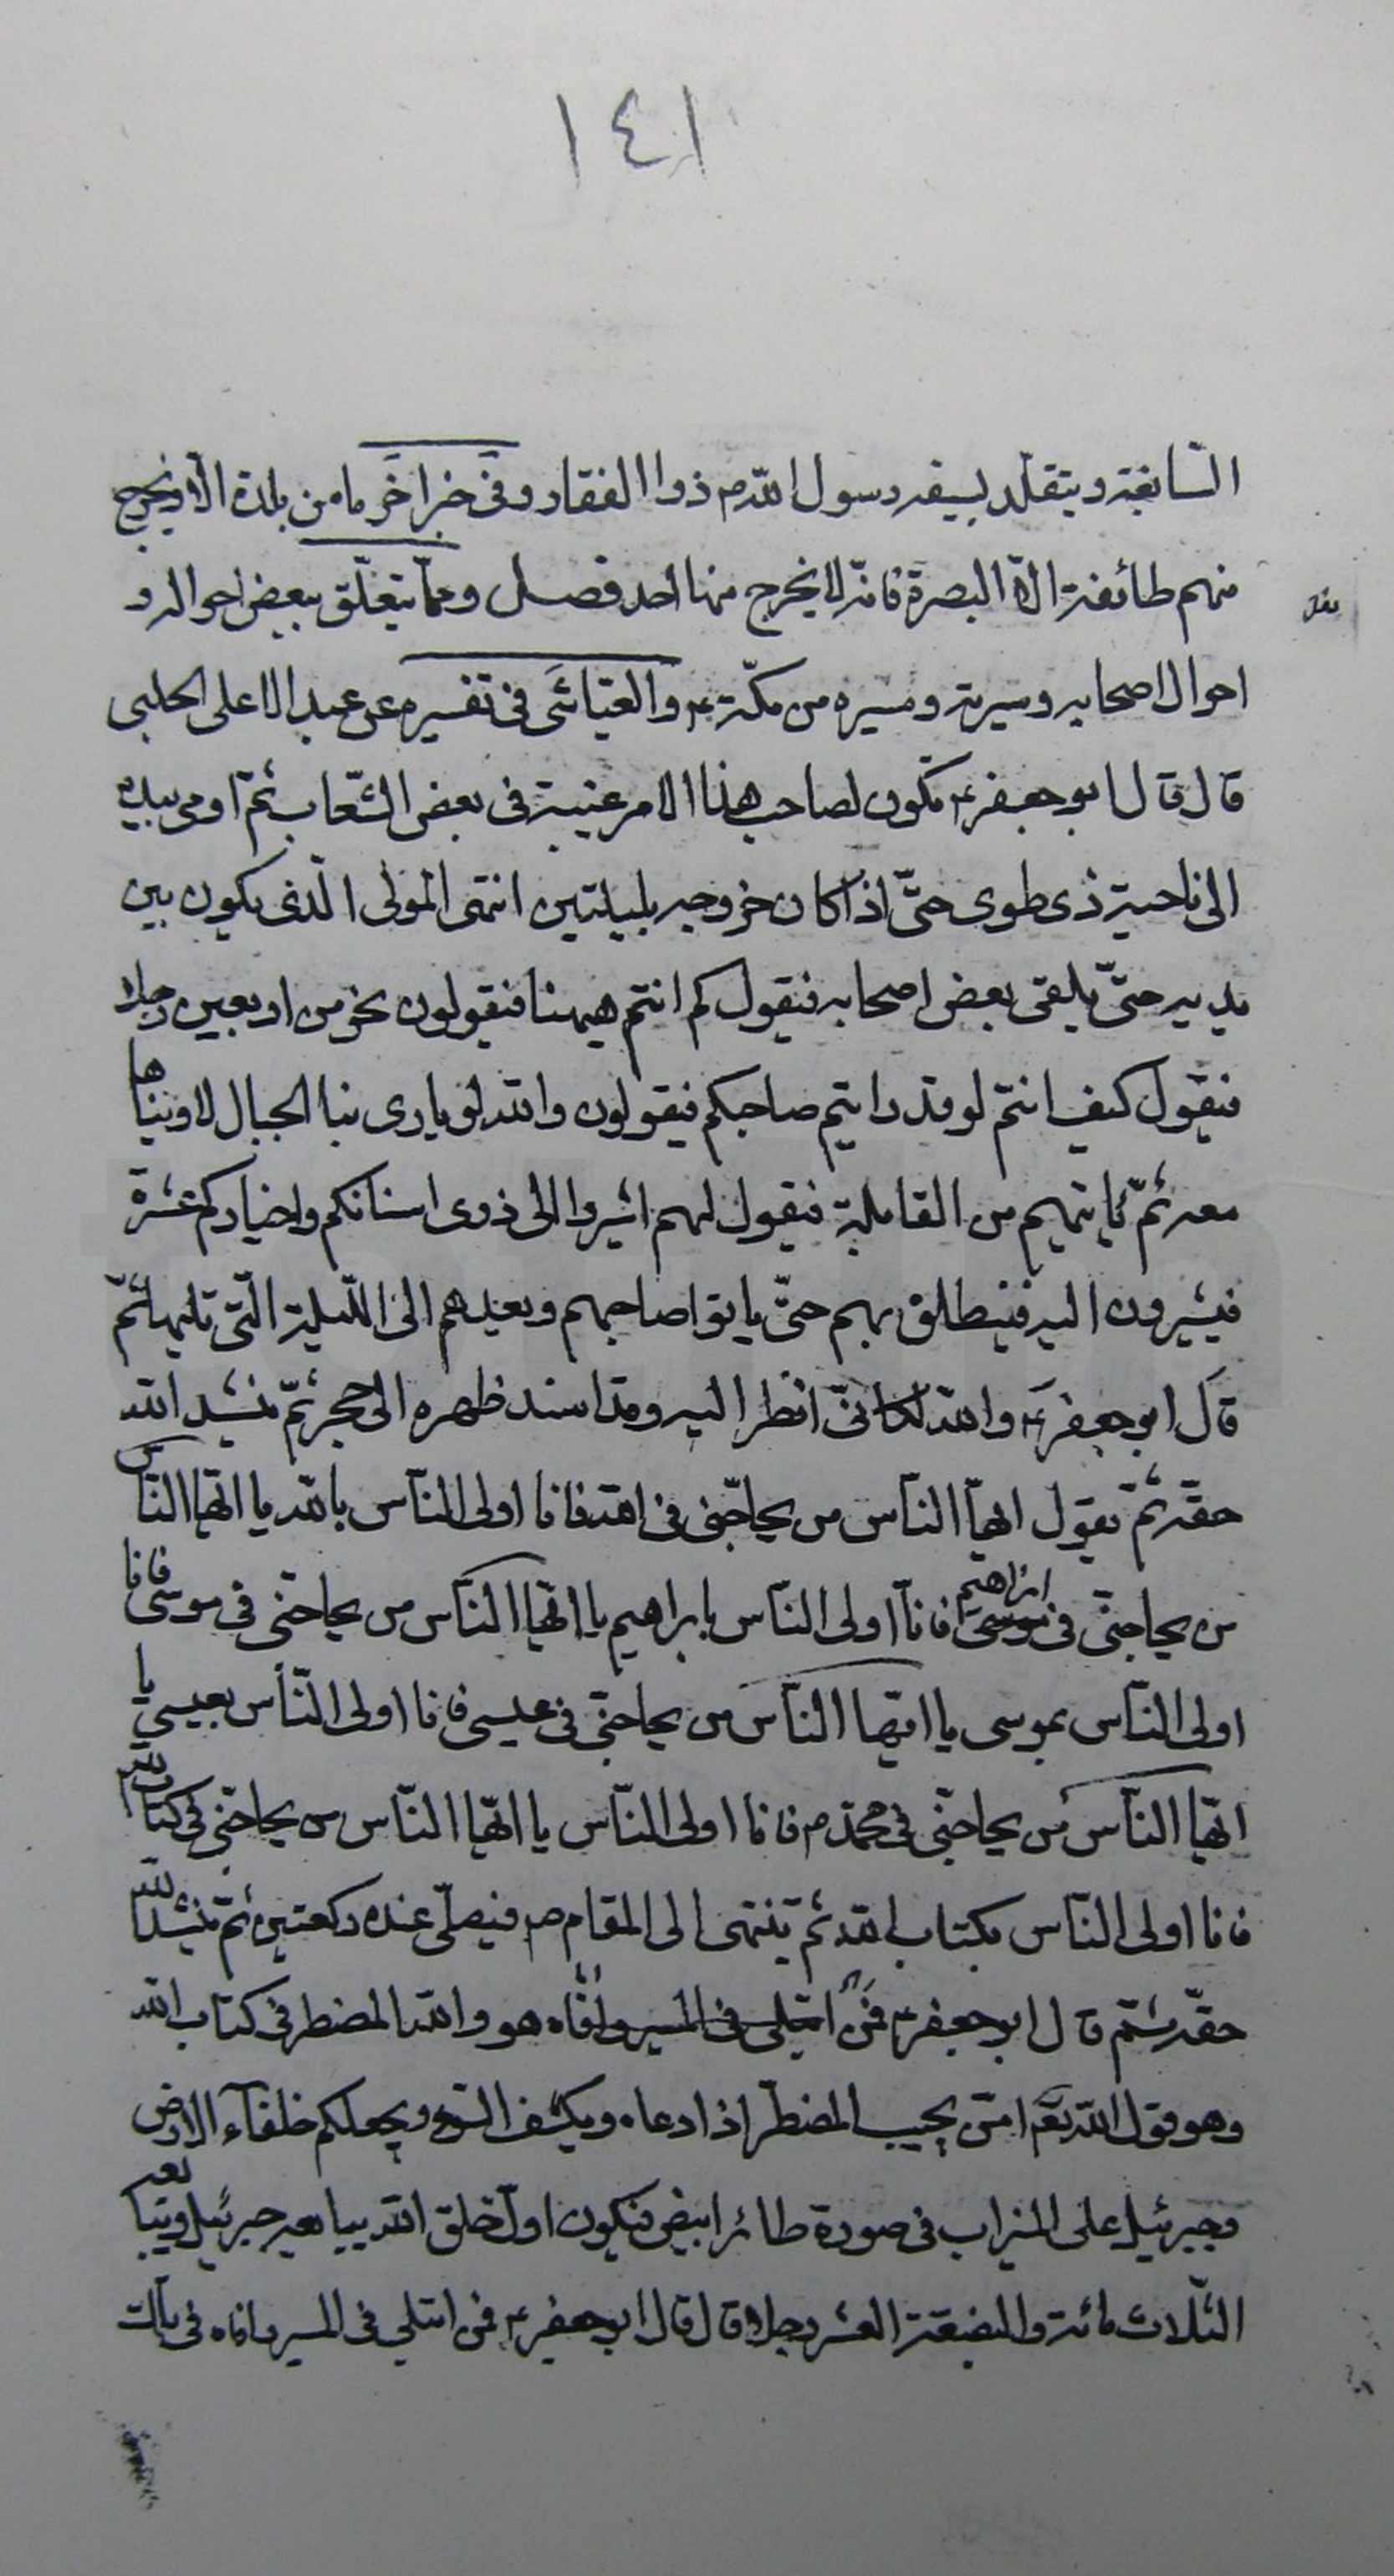 ١٤١
السّابغة ويتقلّد بسيفه رسول اللّه ص ذوا الفقار وفى خبر اخر ما من بلدة الا ويخرج
منهم طائفة الّا البصرة فانّه لا يخرج منها احد فصل وممّا يتعلّق ببعض احواله و
احوال اصحابه وسيرته ومسيره من مكّة والعيّاشى فى تفسيره عن عبد الاعلى الحلبى
قال قال ابو جعفر ع يكون لصاحب هذا الامر غيبة فى بعض الشّعاب ثمّ اومى بيده
الى ناحية ذى طوى حتّى اذا كان خروجه بليلتين انتهى المولى الّذى يكون بين
يديه حتّى يلقى بعض اصحابه فيقول كم انتم ههنا فيقولون نحو من اربعين رجلا
فيقول كيف انتم لو قد رايتم صاحبكم فيقولون واللّه لو ياوى بنا الجبال لاويناها
معه ثمّ ياتيهم من القابلة فيقول لهم اشيروا الى ذوى اسنانكم واخياركم عشرة
فيشيرون اليه فينطلق بهم حتّى ياتوا صاحبهم ويعدهم الى اللّيلة الّتى تليها ثمّ
قال ابو جعفر ع واللّه لكانّى انظر اليه وقد اسند ظهره الى الحجر ثمّ ينشد اللّه
حقّه ثمّ يقول ايّها النّاس من يحاجّنى فى اللّه فانا اولى النّاس باللّه يا ايّها النّاس
من يحاجّنى فى موسى ابراهيم فانا اولى النّاس بابراهيم يا ايّها النّاس من يحاجّنى فى موسى فانا
اولى النّاس بموسى يا ايّها النّاس من يحاجّنى فى عيسى فانا اولى النّاس بعيسى يا
ايّها النّاس من يحاجّنى فى محمّد ص فانا اولى النّاس يا ايّها النّاس من يحاجّنى فى كتاب اللّه
فانا اولى النّاس بكتاب اللّه ثم ينتهى الى المقام فيصلّى عنده ركعتين ثمّ ينشد اللّه
حقّه ثمّ قال ابو جعفر ع فمن ابتلى فى المسير وافاه هو واللّه المضطر فى كتاب اللّه
وهو قول اللّه تعم امّن يجيب المضطرّ اذا دعاه ويكشف السّوء ويجعلكم خلفآء الارض
وجبرئيل على الميزاب فى صورة طائر ابيض فيكون اوّل خلق اللّه يبايعه جبرئيل ويبايعه
الثّلاث مائة والبضعة العشر رجلا قال قال ابو جعفر ع فمن ابتلى فى المسير وافاه فى تلك